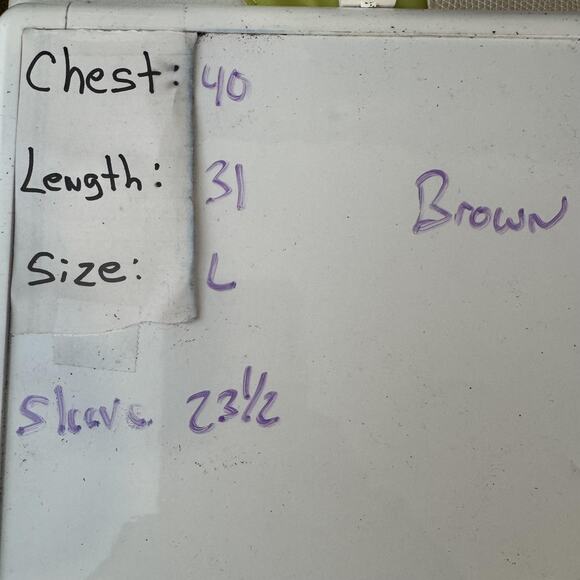 Chest: 40
Length: 31
Brown
Size: L
Sleeve 23½